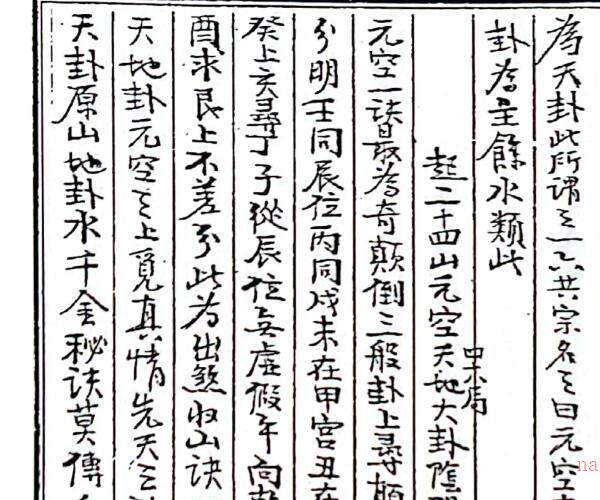 為天卦此所謂之一六共宗名之曰元空
卦為主餘水類此
起二十四山元空天地大卦陰
四大局
元空一訣最為奇顛倒三般卦上尋順
分明壬同辰位丙同戌未在甲宮丑在
癸上亥尋丁子從辰位無虛假午向
酉求艮上不差分此為出煞收山訣
天地卦元空之上覓真情先天之
天卦原山地卦水千金秘訣莫傳
na